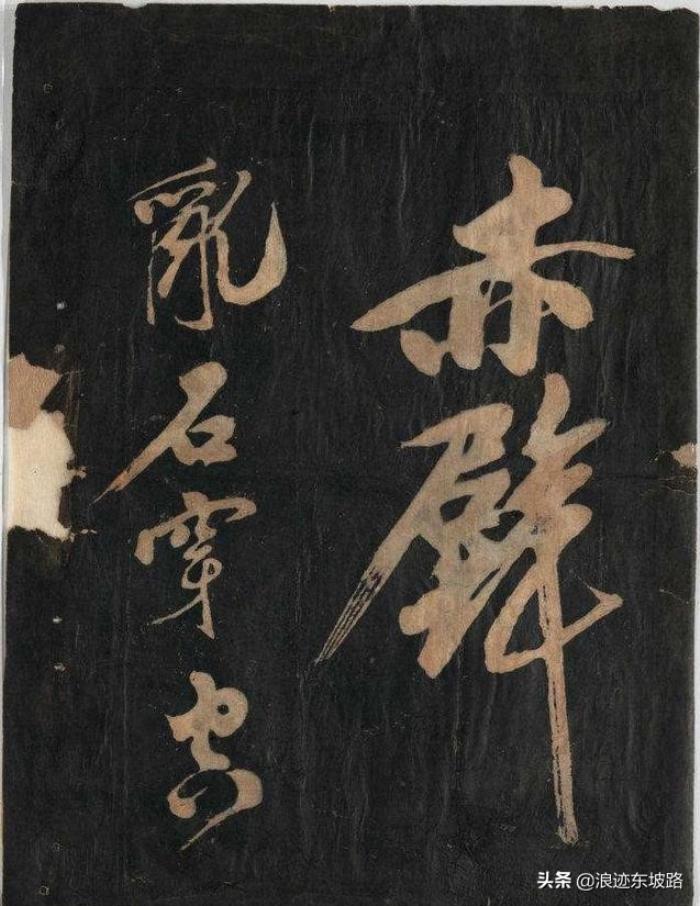 赤壁
亂石穿空
头条 @浪迹东坡路